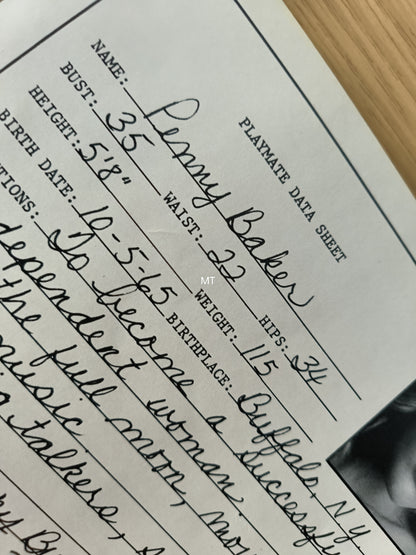 PLAYMATE DATA SHEET
NAME: Penny Baker
BUST: 35 WAIST: 22 HIPS: 34
HEIGHT: 5'8" WEIGHT: 115
BIRTH DATE: 10-5-65 BIRTHPLACE: Buffalo, NY
TIONS: To become a successf
dependent woman.
the full moon, mo
music.
talkers,
MT